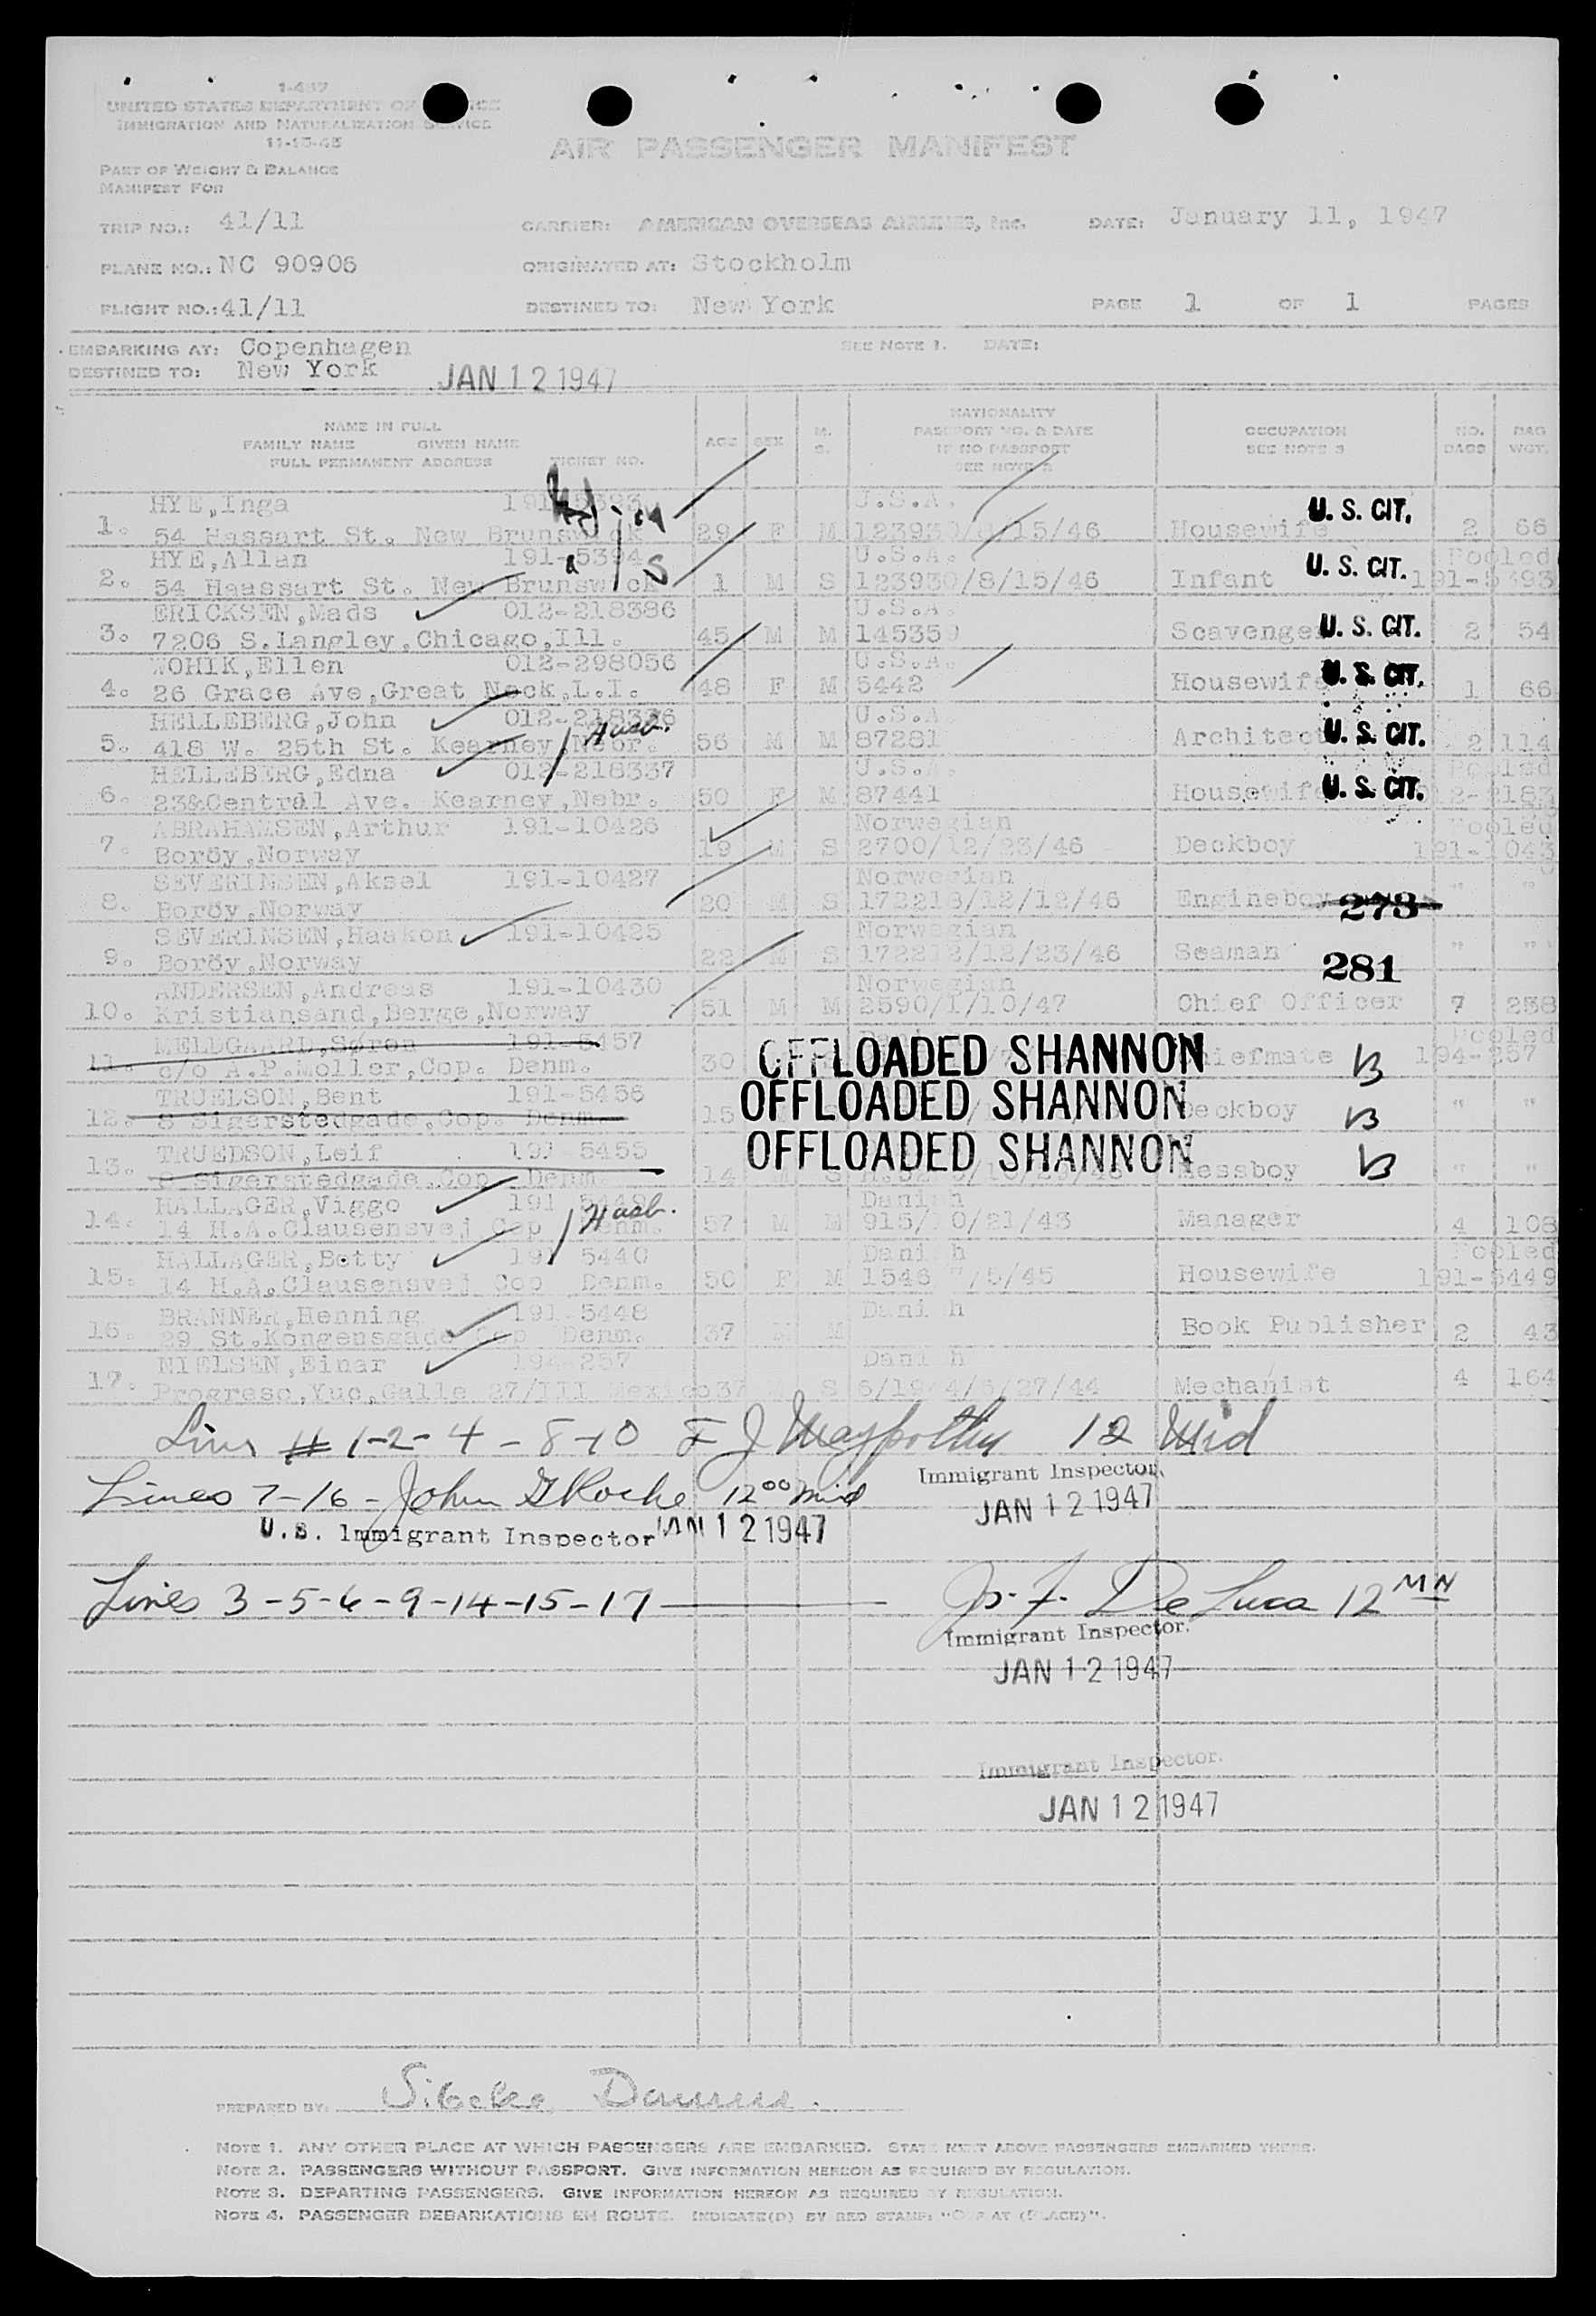 1-467
UNITED STATES DEPARTMENT OF
IMMIGRATION AND NATURALIZATION SERVICE
11-15-45
AIR PASSENGER MANIFEST
PART OF WEIGHT & BALANCE
MANIFEST FOR
TRIP NO.: 41/11 CARRIER: AMERICAN OVERSEAS AIRLINES, Inc. DATE: January 11, 1947
PLANE NO.: NC 90906 ORIGINATED AT: Stockholm
FLIGHT NO.: 41/11 DESTINED TO: New York PAGE 1 OF 1 PAGES
EMBARKING AT: Copenhagen SEE NOTE 1. DATE:
DESTINED TO: New York JAN 12 1947
NAME IN FULL
FAMILY NAME GIVEN NAME
FULL PERMANENT ADDRESS TICKET NO. AGE SEX M. S. NATIONALITY PASSPORT NO. & DATE IF NO PASSPORT SEE NOTE 2 OCCUPATION SEE NOTE 3 NO. BAGS BAG WGT.
HYE, Inga U.S.A. U. S. CIT.
1. 54 Hassart St. New Brunswick 29 F M 123930/8/15/46 Housewife 2 66
HYE, Allan 191-5394 U.S.A. Pooled
2. 54 Haassart St. New Brunswick S 1 M S 123930/8/15/46 Infant U. S. CIT.
ERICKSEN, Mads 012-218386 U.S.A.
3. 7206 S. Langley, Chicago, Ill. 45 M M 145359 Scavenger U. S. CIT. 2 54
WOHIK, Ellen 012-298056 U.S.A.
4. 26 Grace Ave, Great Neck, L.I. 48 F M 5442 Housewife U. S. CIT. 1 66
HELLEBERG, John 012-218336 U.S.A.
5. 418 W. 25th St. Kearney, Nebr. Husb. 56 M M 87281 Architect U. S. CIT. 2 114
HELLEBERG, Edna 012-218337 U.S.A. Pooled
6. 23&Central Ave. Kearney, Nebr. 50 F M 87441 Housewife U. S. CIT.
ABRAHAMSEN, Arthur 191-10426 Norwegian Pooled
7. Boröy, Norway 19 M S 2700/12/23/46 Deckboy 191-1043
SEVERINSEN, Aksel 191-10427 Norwegian
8. Boröy, Norway 20 M S 172218/12/12/46 Engineboy 273 " "
SEVERINSEN, Haakon 191-10425 Norwegian
9. Boröy, Norway 22 M S 172212/12/23/46 Seaman 281 " "
ANDERSEN, Andreas 191-10430 Norwegian
10. Kristiansand, Berge, Norway 51 M M 2590/1/10/47 Chief Officer 7 238
MELDGAARD, Søren 191-5457 Pooled
11. c/o A.P. Moller, Cop. Denm. 30 OFFLOADED SHANNON Chiefmate 194-257
TRUELSON, Bent 191-5456
12. 8 Sigerstedgade, Cop. Denm. 15 OFFLOADED SHANNON Deckboy " "
TRUEDSON, Leif 191 5455
13. Sigerstedgade, Cop Denm. 14 OFFLOADED SHANNON Messboy " "
HALLAGER, Viggo 191 Danish
14. 14 H.A. Clausensvej Cop Denm. Husb. 57 M M 915/10/21/43 Manager 4 108
HALLAGER, Betty 191 5440 Danish Pooled
15. 14 H.A. Clausensvej Cop Denm. 50 F M 1546 7/5/45 Housewife 191-5449
BRANNER, Henning 191 5448 Danish
16. 29 St. Kongensgade Cop Denm. 37 M M Book Publisher 2 43
NIELSEN, Einar 194-257 Danish
17. Progreso, Yuc, Calle 27/III Mexico 37 M S 6/19 4/6/27/44 Mechanist 4 164
Lines # 1-2-4-8-10 12 Mid
Immigrant Inspector.
JAN 12 1947
Lines 7-16 - John G Roche 12 00 Mid
U.S. Immigrant Inspector JAN 12 1947
Lines 3-5-6-9-14-15-17 J. F. De Luca 12 MN
Immigrant Inspector.
JAN 12 1947
Immigrant Inspector.
JAN 12 1947
PREPARED BY:
NOTE 1. ANY OTHER PLACE AT WHICH PASSENGERS ARE EMBARKED. STATE NEXT ABOVE PASSENGERS EMBARKED THERE.
NOTE 2. PASSENGERS WITHOUT PASSPORT. GIVE INFORMATION HEREON AS REQUIRED BY REGULATION.
NOTE 3. DEPARTING PASSENGERS. GIVE INFORMATION HEREON AS REQUIRED BY REGULATION.
NOTE 4. PASSENGER DEBARKATIONS EN ROUTE. INDICATE(D) BY RED STAMP: "OFF AT (PLACE)".